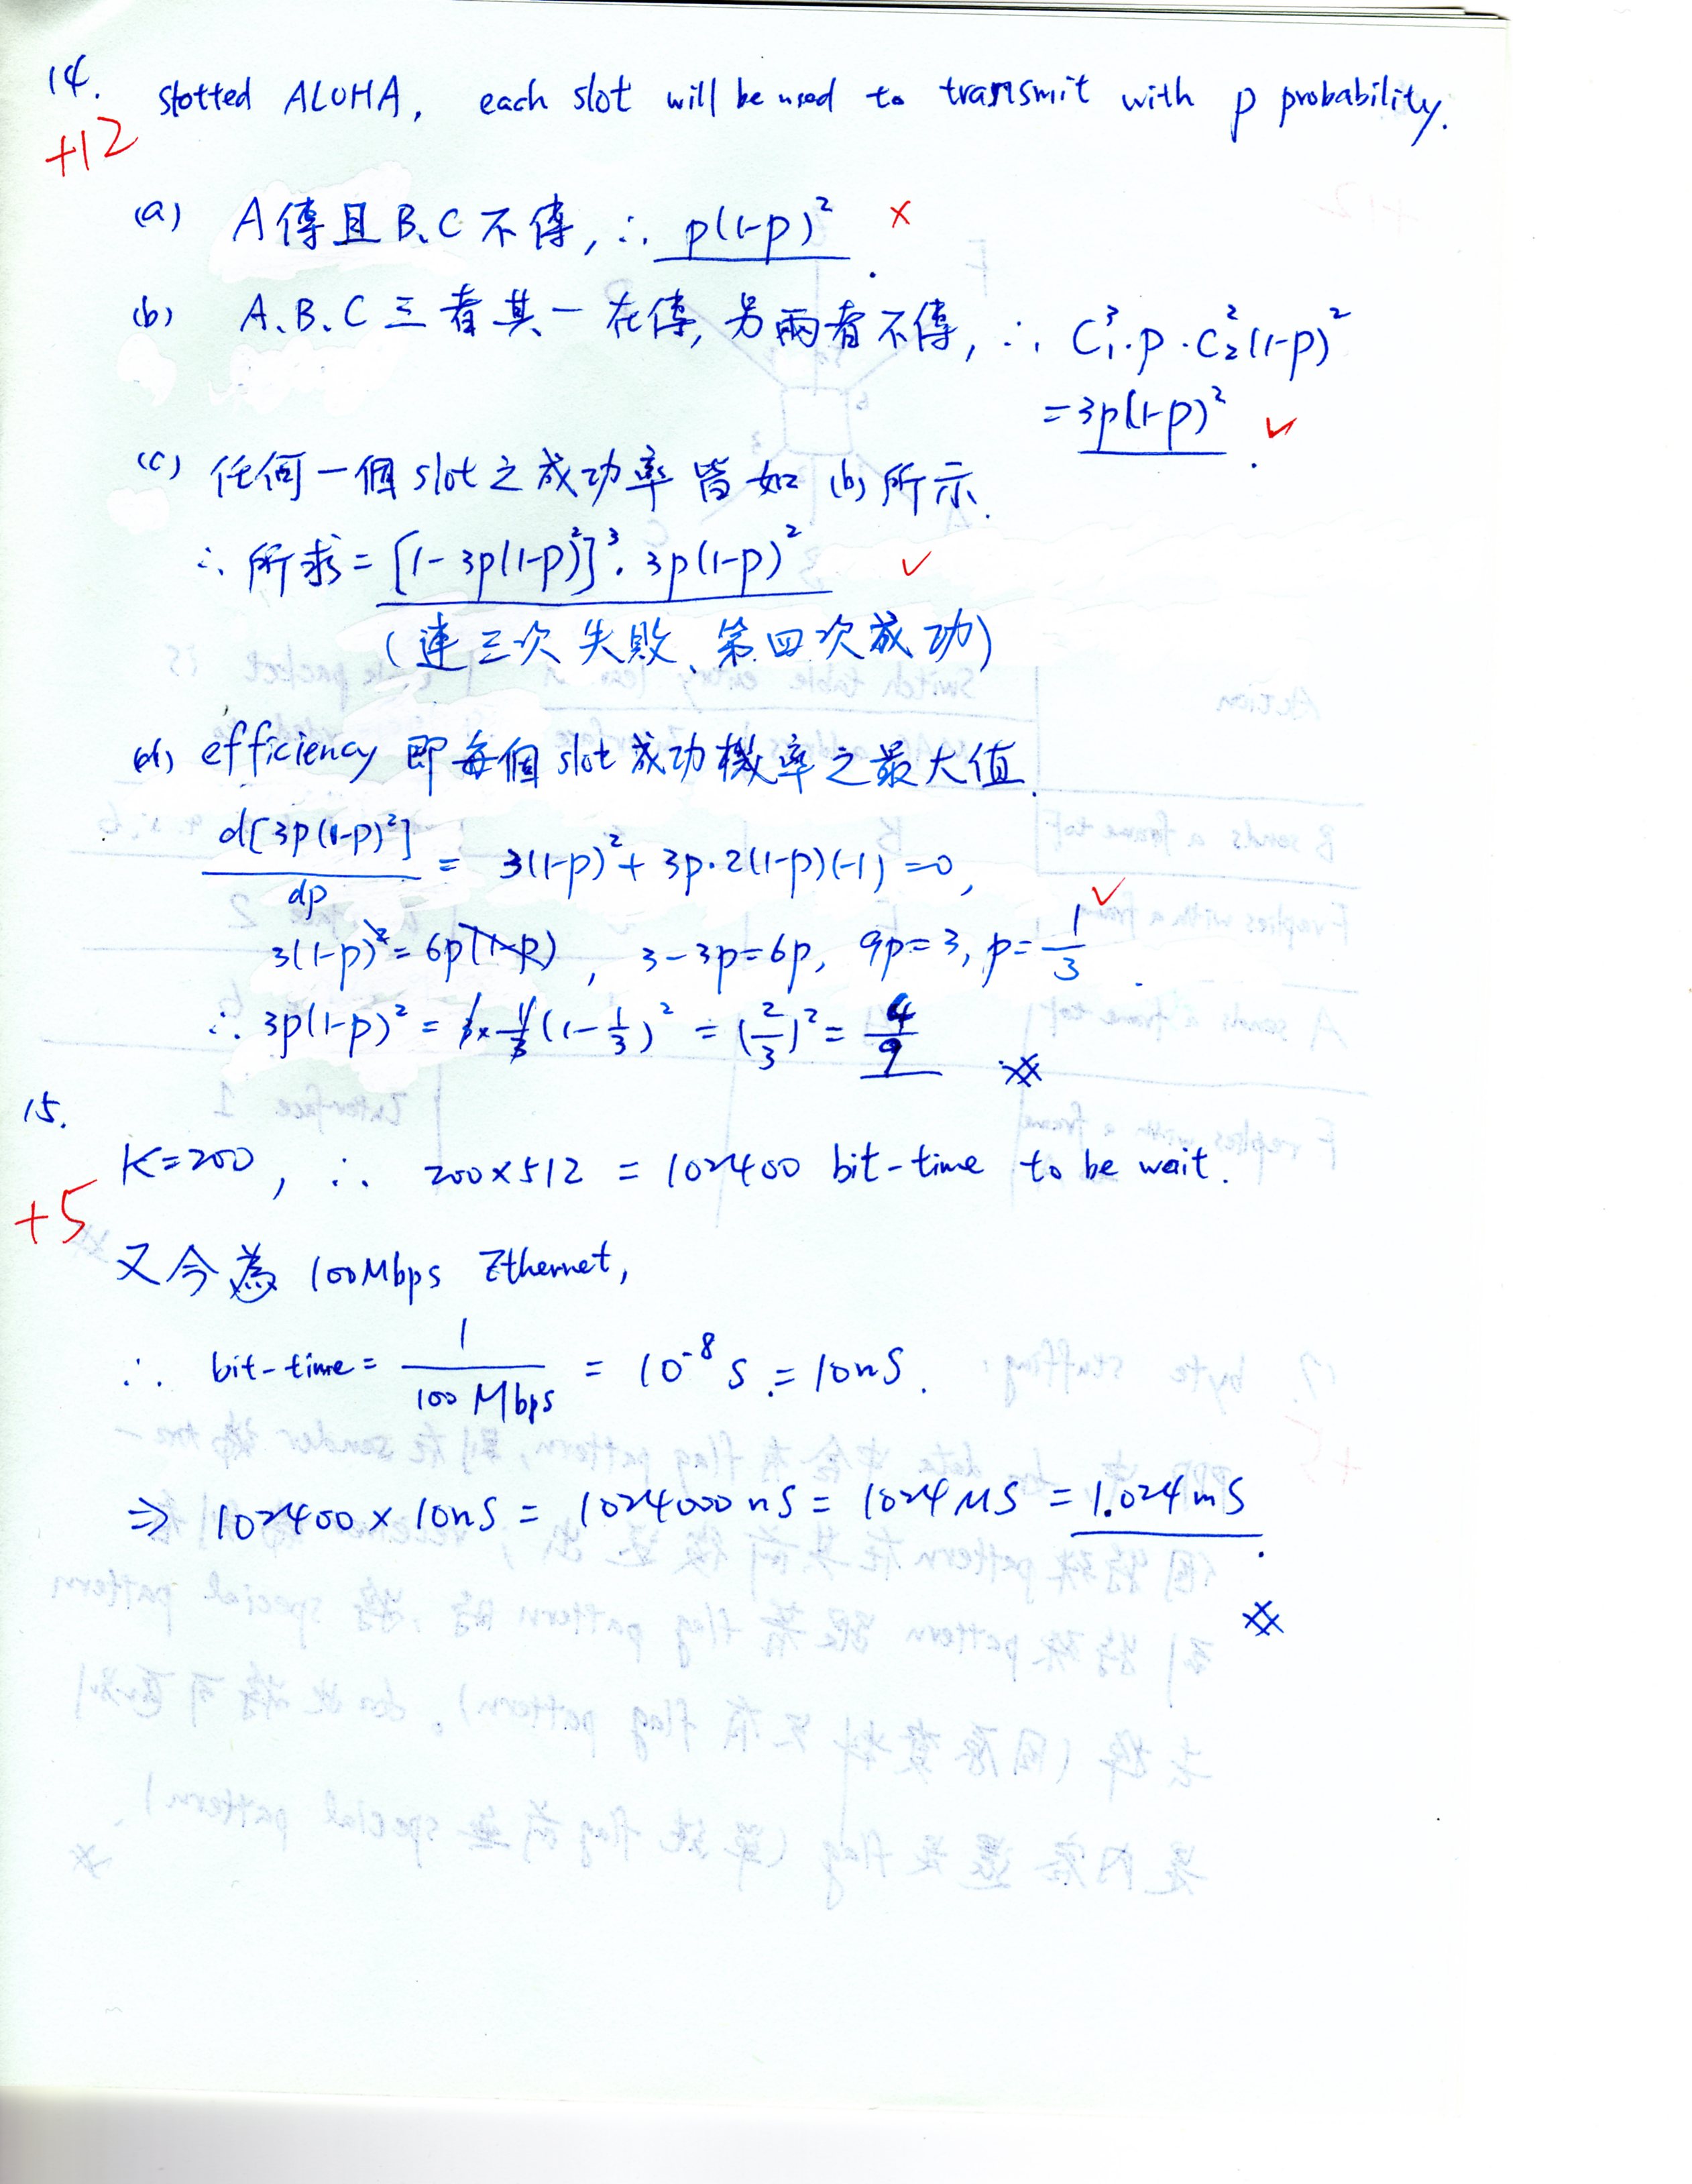 14.
+12
slotted ALOHA, each slot will be used to transmit with p probability.
(a) A傳且B、C不傳, ∴ p(1-p)² ×
(b) A、B、C三者其一在傳, 另兩者不傳, ∴ C³₁·p·C²₂(1-p)²
=3p(1-p)² ✓
(c) 任何一個slot之成功率皆如(b)所示.
∴ 所求= [1-3p(1-p)²]³·3p(1-p)² ✓
(連三次失敗、第四次成功)
(d) efficiency 即每個slot成功機率之最大值.
d[3p(1-p)²]/dp = 3(1-p)²+3p·2(1-p)(-1)=0,
3(1-p)²=6p(1-p), 3-3p=6p, 9p=3, p=1/3 ✓
∴ 3p(1-p)² = 3×1/3(1-1/3)² = (2/3)² = 4/9
15.
+5
K=200, ∴ 200×512 = 102400 bit-time to be wait.
又今為100Mbps Ethernet,
∴ bit-time= 1/100Mbps = 10⁻⁸ S = 10nS.
⇒ 102400×10nS = 1024000nS = 1024μS = 1.024mS.